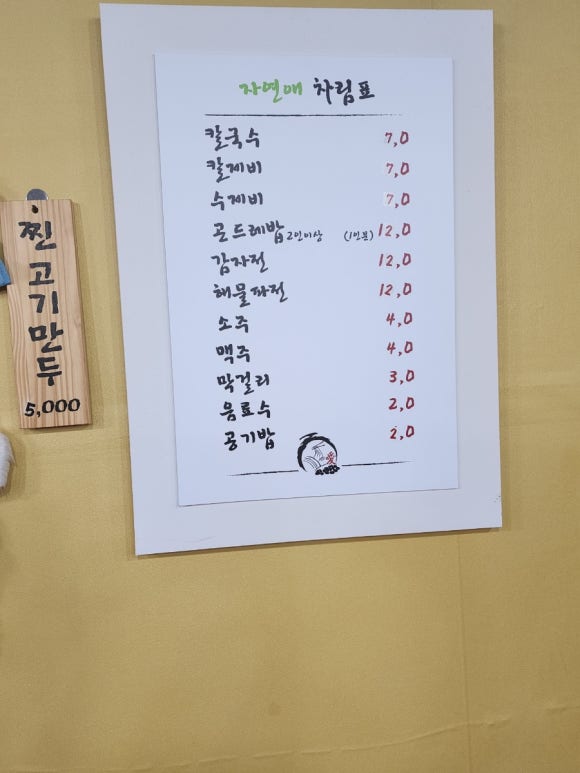 자연애 차림표
칼국수 7,0
칼제비 7,0
수제비 7,0
곤드레밥 2인이상 (1인분) 12,0
감자전 12,0
해물파전 12,0
소주 4,0
맥주 4,0
막걸리 3,0
음료수 2,0
공기밥 2,0
찐고기만두
5,000